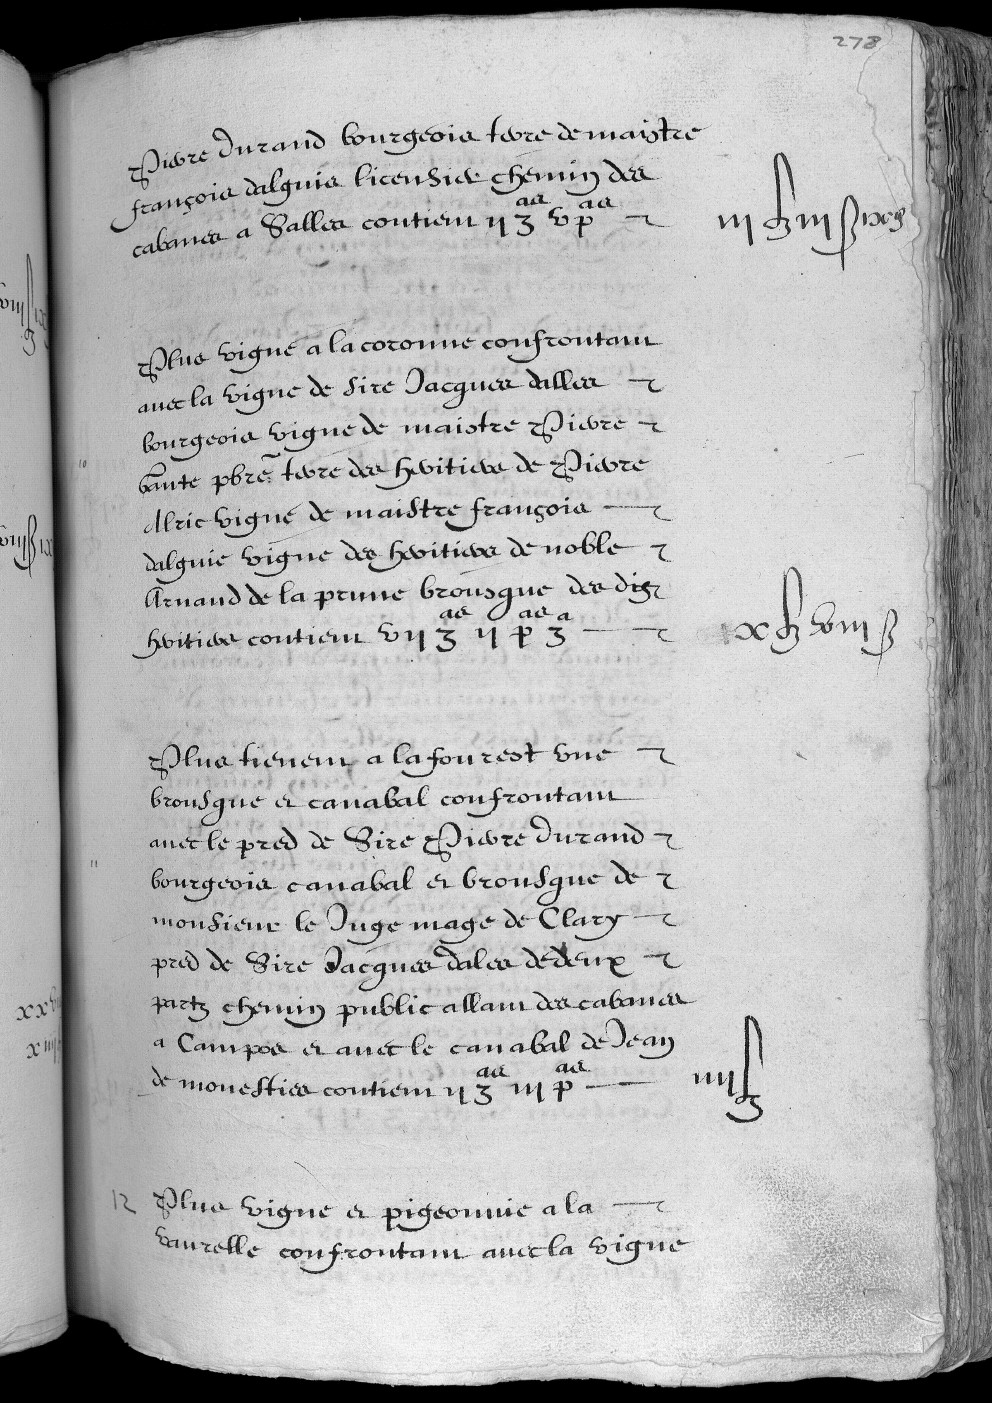 278
Pierre durand bourgeois terre de maistre
françois dalguis licensier chemin des
cabanes a Salles contient ii ʒ as v p as
iii ʃʒ iiii
Plus vigne a la coronne confrontant
avec la vigne de sire Jacques dalles
bourgeois vigne de maistre Pierre
bante pbre terre des heritiers de Pierre
Alric vigne de maistre françois
dalguie vigne des heritiers de noble
Arnaud de la prune brousque des dis
heritiers contient vii ʒ as ii p as ʒ a
x ʃʒ viii
Plus tienent a la fourest vne
brousque et canabal confrontant
avec le pred de Sire Pierre durand
bourgeois canabal et brousque de
monsieur le Juge mage de Clary
pred de Sire Jacques dales de deux
partz chemin public allant des cabanes
a Campes et avec le canabal de Jean
de monesties contient ii ʒ as iii p as
iiii ʃʒ
12
Plus vigne et pigeonnie a la
vaurelle confrontant avec la vigne